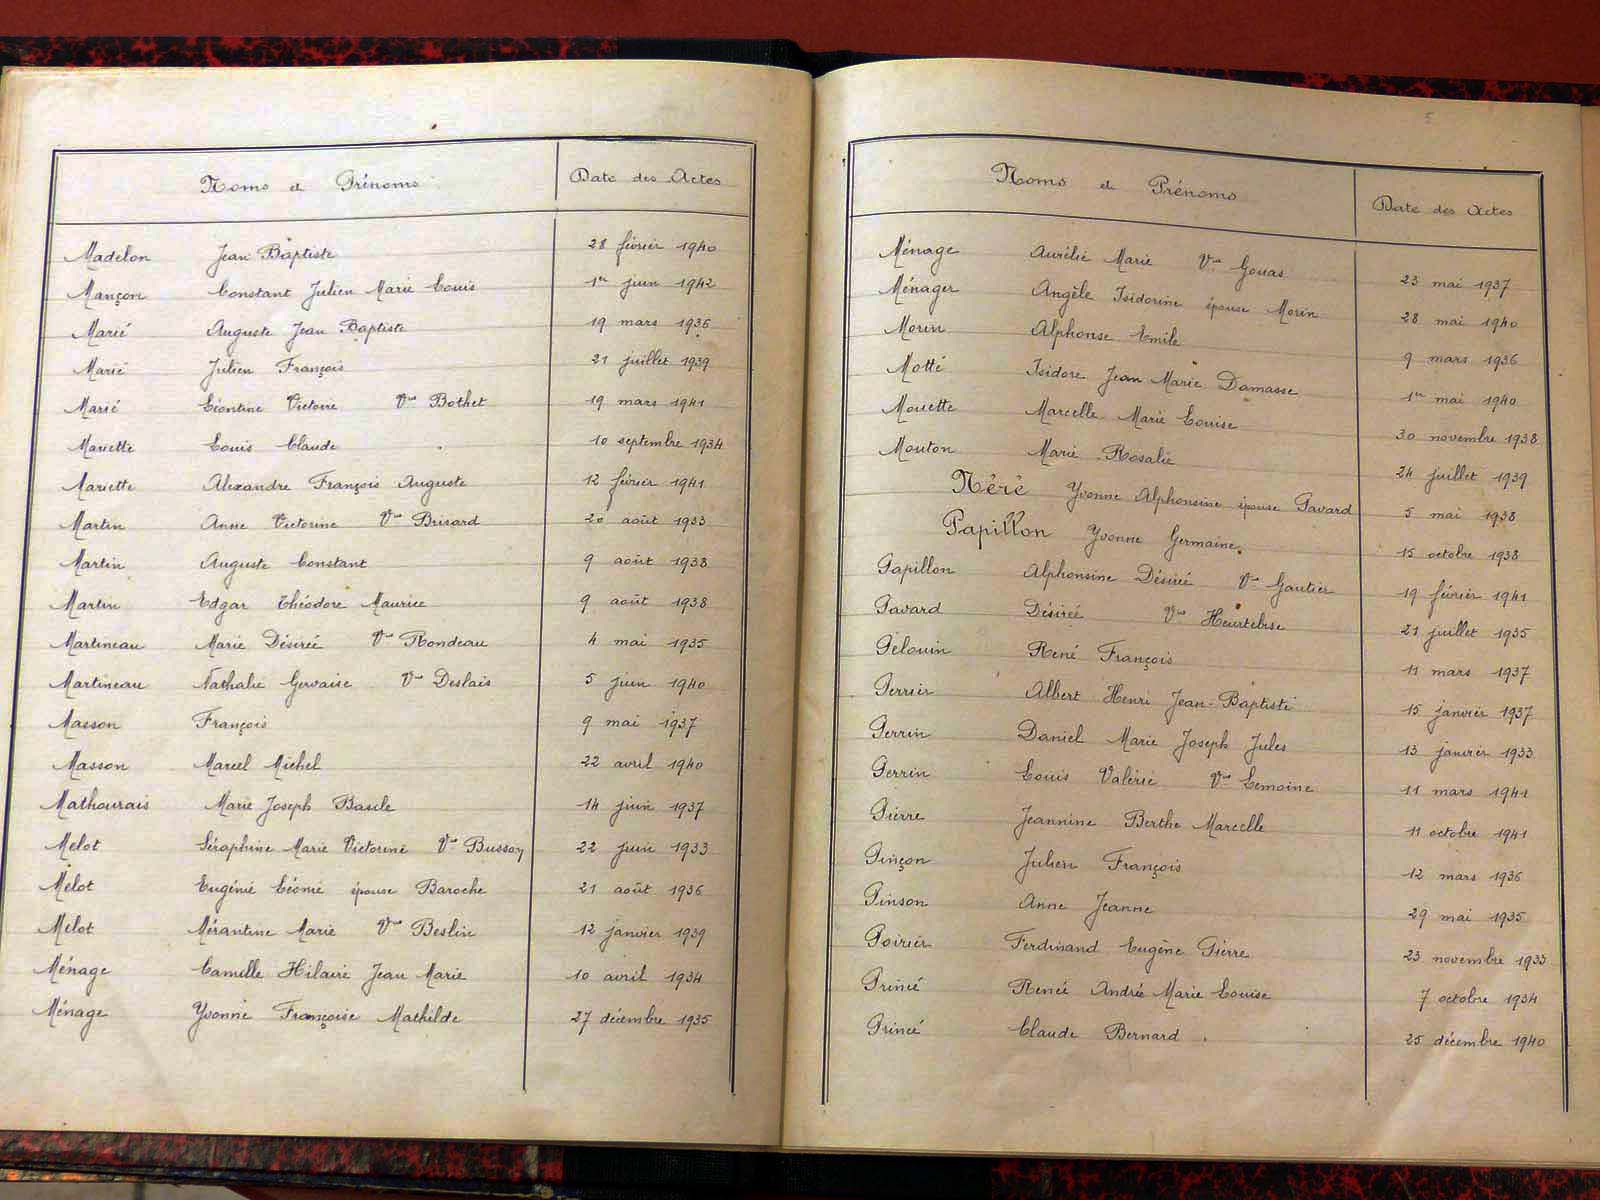 Noms et Prénoms Date des Actes
Madelon Jean Baptiste 28 février 1940
Mançon Constant Julien Marie Louis 1er juin 1942
Marié Auguste Jean Baptiste 19 mars 1936
Marié Julien François 21 juillet 1939
Marié Léontine Victoire Vve Bothet 19 mars 1941
Mariette Louis Claude 10 septembre 1934
Mariette Alexandre François Auguste 12 février 1941
Martin Anne Victorine Vve Brisard 20 août 1933
Martin Auguste Constant 9 août 1938
Martin Edgar Théodore Maurice 9 août 1938
Martineau Marie Désirée Vve Rondeau 4 mai 1935
Martineau Nathalie Gervaise Vve Deslais 5 juin 1940
Masson François 9 mai 1937
Masson Marcel Michel 22 avril 1940
Mathourais Marie Joseph Basile 14 juin 1937
Melot Séraphine Marie Victorine Vve Busson 22 juin 1933
Melot Eugénie Léonie épouse Baroche 21 août 1936
Melot Mérantine Marie Vve Beslin 12 janvier 1939
Ménage Camille Hilaire Jean Marie 10 avril 1934
Ménage Yvonne Françoise Mathilde 27 décembre 1935
5
Noms et Prénoms Date des Actes
Ménage Aurélie Marie Vve Gouas 23 mai 1937
Ménager Angèle Isidorine épouse Morin 28 mai 1940
Morin Alphonse Emile 9 mars 1936
Motté Isidore Jean Marie Damasse 1er mai 1940
Mouette Marcelle Marie Louise 30 novembre 1938
Mouton Marie Rosalie 24 juillet 1939
Néré Yvonne Alphonsine épouse Pavard 5 mai 1938
Papillon Yvonne Germaine 15 octobre 1938
Papillon Alphonsine Désirée Vve Gautier 19 février 1941
Pavard Désirée Vve Heurtebise 21 juillet 1935
Pelouin René François 11 mars 1937
Perrier Albert Henri Jean-Baptiste 15 janvier 1937
Perrin Daniel Marie Joseph Jules 13 janvier 1933
Perrin Louis Valérie Vve Lemoine 11 mars 1941
Pierre Jeannine Berthe Marcelle 11 octobre 1941
Pinçon Julien François 12 mars 1936
Pinson Anne Jeanne 29 mai 1935
Poirier Ferdinand Eugène Pierre 23 novembre 1933
Princé Renée Andrée Marie Louise 7 octobre 1934
Princé Claude Bernard 25 décembre 1940